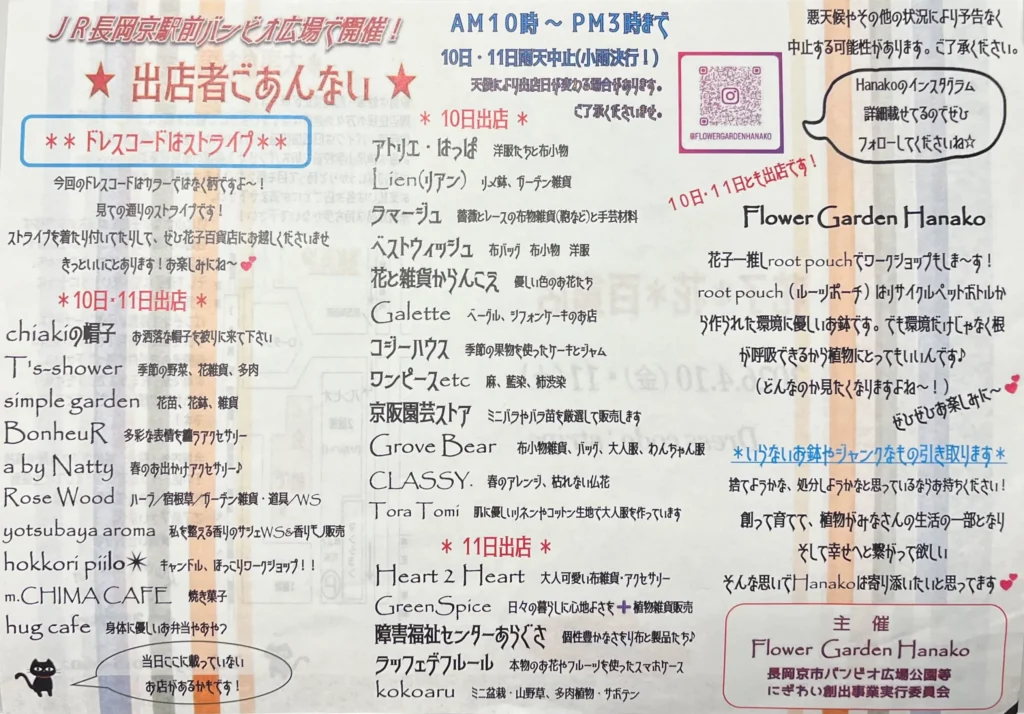 JR長岡京駅前バンビオ広場で開催！
★ 出店者ごあんない ★
＊＊ ドレスコードはストライプ＊＊
今回のドレスコードはカラーではなく柄ですよ～！
見ての通りのストライプです！
ストライプを着たり付けてたりして、ぜひ花子百貨店にお越しくださいませ
きっといいことあります！お楽しみにね～💕
＊10日・11日出店 ＊
chiakiの帽子 お洒落な帽子を被りに来て下さい
T's-shower 季節の野菜、花雑貨、多肉
simple garden 花苗、花鉢、雑貨
BonheuR 多彩な表情を纏うアクセサリー
a by Natty 春のお出かけアクセサリー♪
Rose Wood ハーブ/宿根草/ガーデン雑貨・道具/WS
yotsubaya aroma 私を整える香りのサシェWS&香りモノ販売
hokkori piilo✴ キャンドル、ほっこりワークショップ！！
m.CHIMA CAFE 焼き菓子
hug cafe 身体に優しいお弁当やおやつ
当日ここに載っていない
お店があるかもです！
AM10時 ～ PM3時まで
10日・11日雨天中止(小雨決行！)
天候により出店日が変わる場合があります。
ご了承くださいませ。
＊ 10日出店 ＊
アトリエ・はっぱ 洋服たちと布小物
Lien(リアン) リメ鉢、ガーデン雑貨
ラマージュ 薔薇とレースの布物雑貨(鞄など)と手芸材料
ベストウィッシュ 布バッグ 布小物 洋服
花と雑貨からんこえ 優しい色のお花たち
Galette ベーグル、シフォンケーキのお店
コジーハウス 季節の果物を使ったケーキとジャム
ワンピースetc 麻、藍染、柿渋染
京阪園芸ストア ミニバラやバラ苗を厳選して販売します
Grove Bear 布小物雑貨、バッグ、大人服、わんちゃん服
CLASSY. 春のアレンジ、枯れない仏花
Tora Tomi 肌に優しいリネンやコットン生地で大人服を作っています
＊ 11日出店 ＊
Heart 2 Heart 大人可愛い布雑貨・アクセサリー
GreenSpice 日々の暮らしに心地よさを➕植物雑貨販売
障害福祉センターあらぐさ 個性豊かなさをり布と製品たち♪
ラッフェデフルール 本物のお花やフルーツを使ったスマホケース
kokoaru ミニ盆栽・山野草、多肉植物・サボテン
@FLOWERGARDENHANAKO
悪天候やその他の状況により予告なく
中止する可能性があります。ご了承ください。
Hanakoのインスタグラム
詳細載せてるのでぜひ
フォローしてくださいね☆
10日・11日とも出店です！
Flower Garden Hanako
花子一推しroot pouchでワークショップもしま～す！
root pouch（ルーツポーチ）はリサイクルペットボトルか
ら作られた環境に優しいお鉢です。でも環境だけじゃなく根
が呼吸できるから植物にとってもいいんです♪
（どんなのか見たくなりますよね～！）
ぜひぜひお楽しみに～💕
＊いらないお鉢やジャンクなもの引き取ります＊
捨てようかな、処分しようかなと思っているならお持ちください！
創って育てて、植物がみなさんの生活の一部となり
そして幸せへと繋がって欲しい
そんな思いでHanakoは寄り添いたいと思ってます💕
主 催
Flower Garden Hanako
長岡京市バンビオ広場公園等
にぎわい創出事業実行委員会